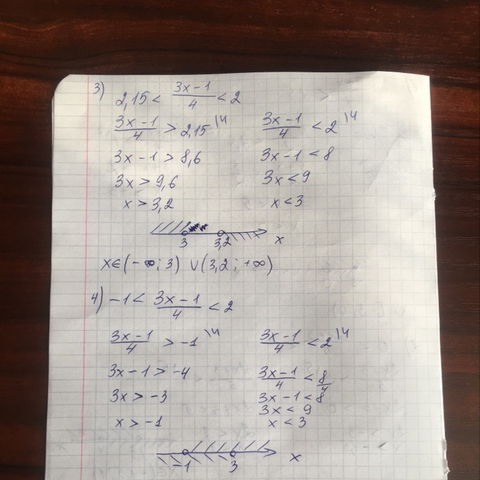 3) 2,15 < (3x-1)/4 < 2
(3x-1)/4 > 2,15 |4    (3x-1)/4 < 2 |4
3x-1 > 8,6    3x-1 < 8
3x > 9,6    3x < 9
x > 3,2    x < 3
3    3,2    x
x∈(-∞; 3) ∪(3,2; +∞)
4) -1 < (3x-1)/4 < 2
(3x-1)/4 > -1 |4    (3x-1)/4 < 2 |4
3x-1 > -4    (3x-1)/4 < 8/4
3x > -3    3x-1 < 8
3x < 9
x > -1    x < 3
-1    3    x